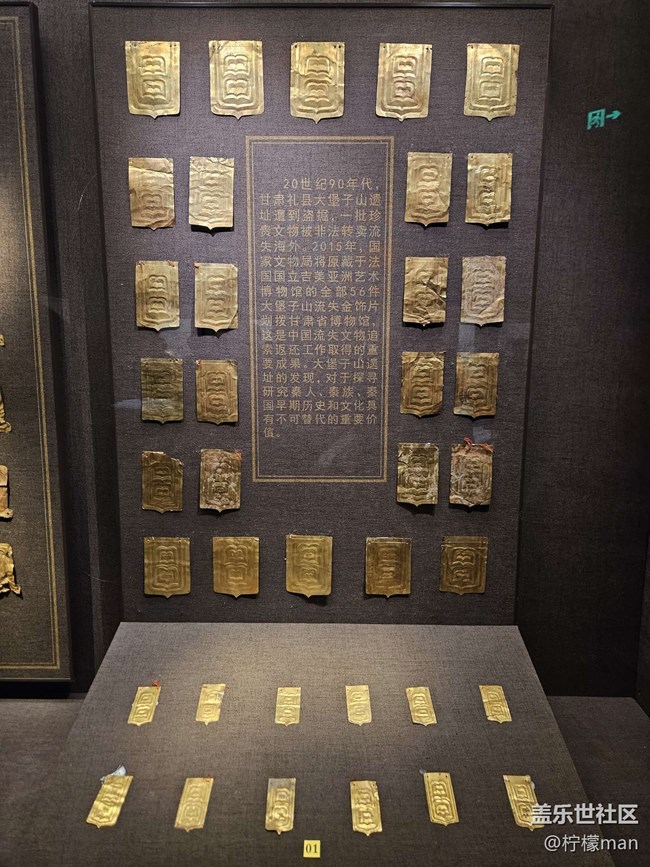 20世纪90年代，
甘肃礼县大堡子山遗
址遭到盗掘，一批珍
贵文物被非法转卖流
失海外。2015年，国
家文物局将原藏于法
国国立吉美亚洲艺术
博物馆的全部56件
大堡子山流失金饰片
划拨甘肃省博物馆，
这是中国流失文物追
索返还工作取得的重
要成果。大堡子山遗
址的发现，对于探寻
研究秦人、秦族、秦
国早期历史和文化具
有不可替代的重要价
值。
01
盖乐世社区
@柠檬man